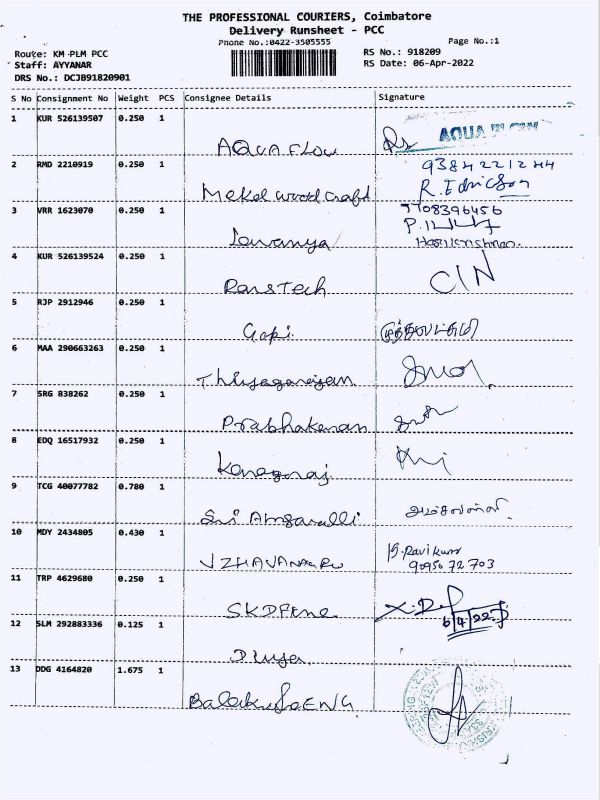 THE PROFESSIONAL COURIERS, Coimbatore
Delivery Runsheet - PCC
Phone No.:0422-3505555
Page No.:1
Route: KM PLM PCC
RS No.: 918209
Staff: AYYANAR
RS Date: 06-Apr-2022
DRS No.: DCJB91820901
S No Consignment No Weight PCS Consignee Details Signature
1 KUR 526139507 0.250 1
AQUA FLOW AQUA
2 RMD 2210919 0.250 1 9384221244
Mekol wood craft R. Edricson
3 VRR 1623070 0.250 1 7708396456
Lavanya Harikrishnan.
4 KUR 526139524 0.250 1
RansTech
5 RJP 2912946 0.250 1
Gopi.
6 MAA 290663263 0.250 1
Thiyagarajan.
7 SRG 838262 0.250 1
Prabhakaran
8 EDQ 16517932 0.250 1
Kanagaraj.
9 TCG 40077782 0.780 1
Sri
10 MDY 2434805 0.430 1
90956 72703
11 TRP 4629680 0.250 1
6/4/22
12 SLM 292883336 0.125 1
Divya.
13 DDG 4164820 1.675 1
ENG